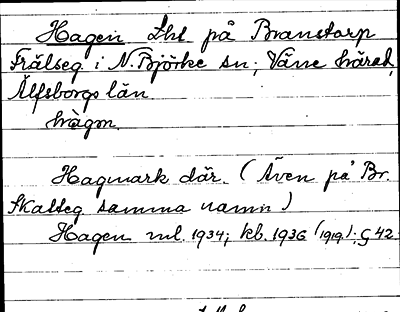 Hagen Lht på Branstorp
Frälseg i N. Björke sn; Väne härad,
Älfsborgs län.
hàgɷn.
Hagmark där. (Även på Br.
Skatteg samma namn)
Hagen ml. 1934; kb. 1936 (1919); G 42.